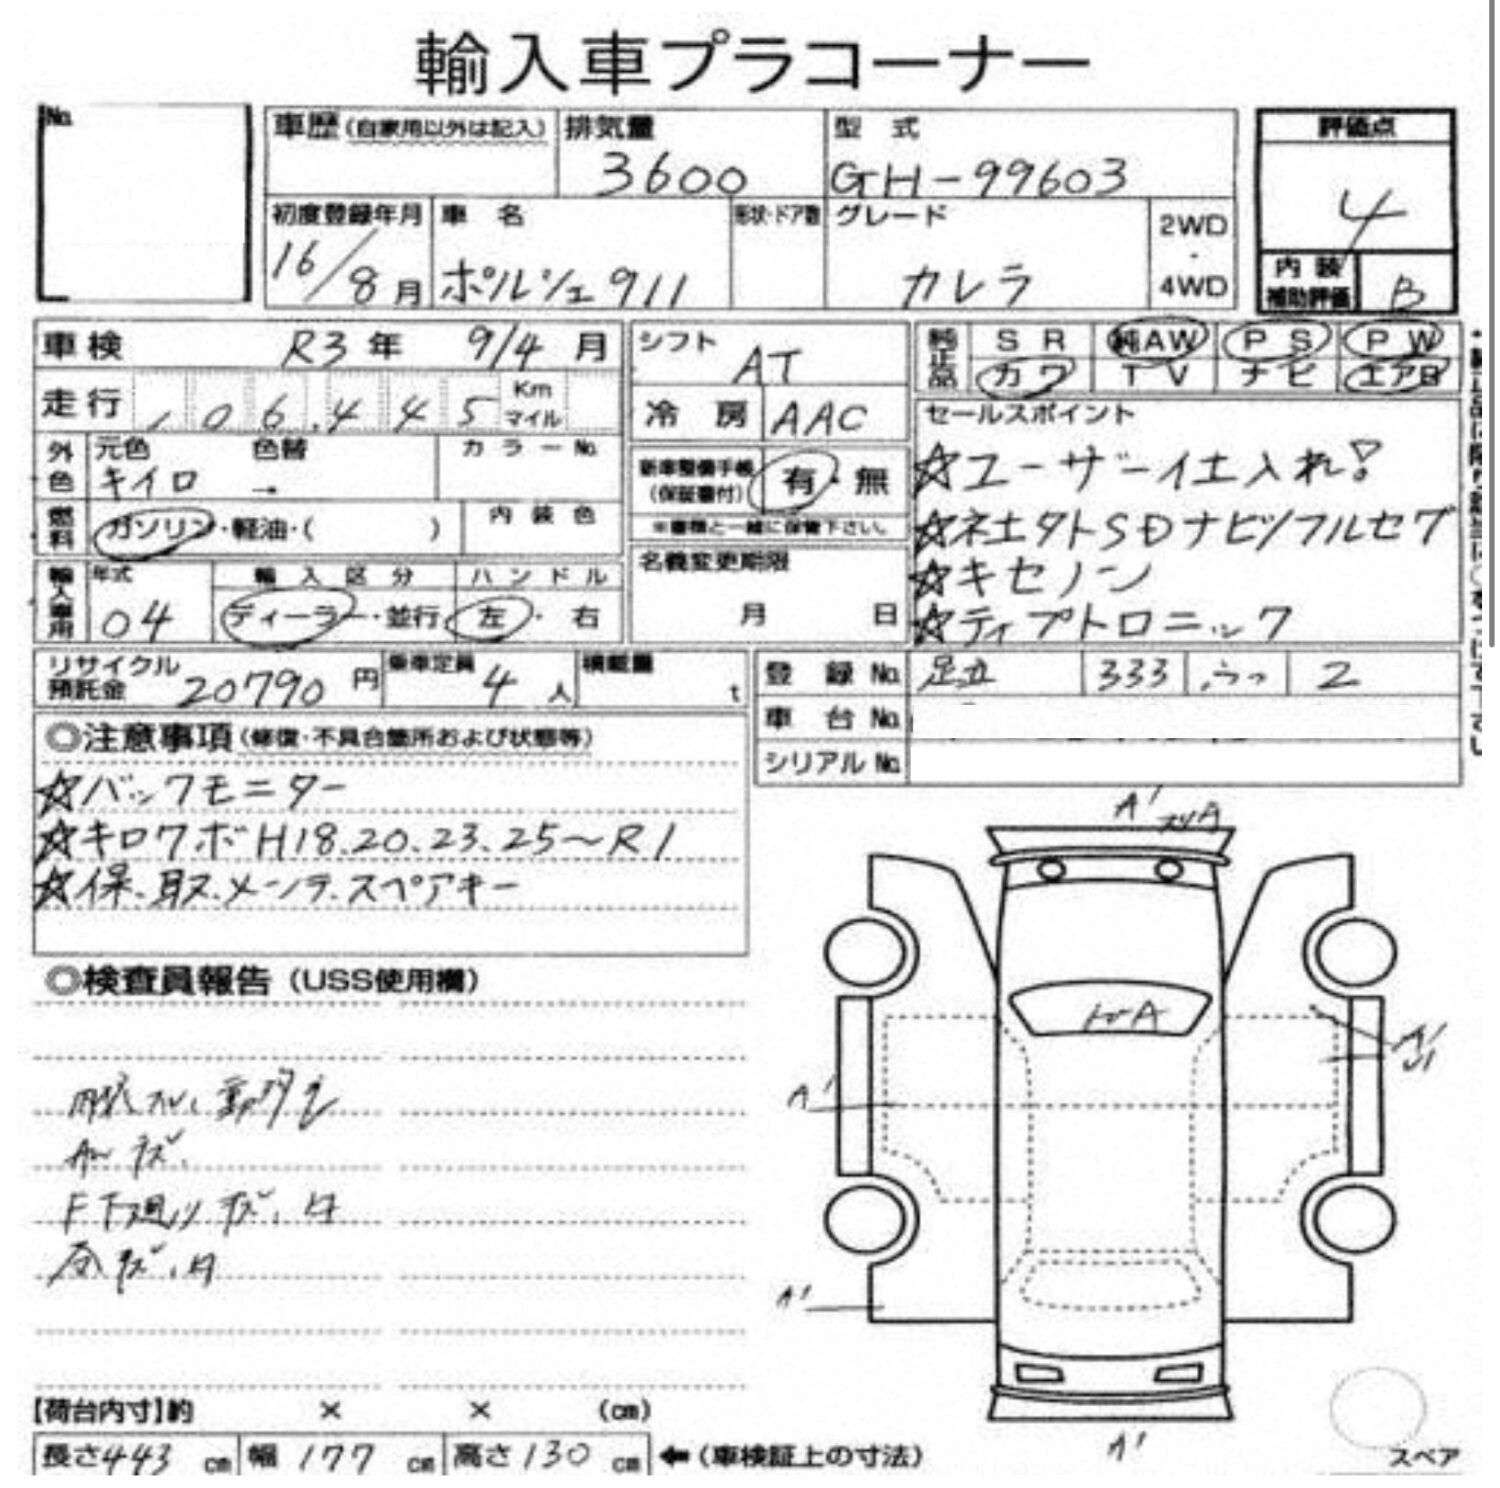 輸入車プラコーナー
No.
車歴(自家用以外は記入)
排気量
3600
型 式
GH-99603
評価点
4
初度登録年月
16/8月
車 名
ポルシェ911
形状・ドア数
グレード
カレラ
2WD
・
4WD
内装
補助評価
B
車検 R3年 9/4月
シフト
AT
純正品
SR
純AW
PS
PW
カワ
TV
ナビ
エアB
走行 106,445 Km
マイル
冷房 AAC
セールスポイント
☆ユーザー仕入れ!
☆社外SDナビ/フルセグ
☆キセノン
☆ティプトロニック
外色
元色
色替
キイロ →
カラーNo.
新車整備手帳
(保証書付)
有・無
※書類と一緒に保管下さい。
燃料
ガソリン・軽油・( )
内装色
名義変更期限
月 日
輸入車用
年式
04
輸入区分
ディーラー・並行
ハンドル
左・右
リサイクル
預託金 20790円
乗車定員
4人
積載量
t
登録No. 足立 333 2
車台No.
シリアルNo.
◎注意事項(修復・不具合箇所および状態等)
☆バックモニター
☆キロクボH18.20.23.25~R1
☆保.取.メンテ.スペアキー
◎検査員報告(USS使用欄)
AWキズ.
F下廻りキズ.
A'
A
A
A'
A'
U1
A'
A'
【荷台内寸】約 × × (cm)
長さ443cm 幅177cm 高さ130cm ←(車検証上の寸法)
スペア